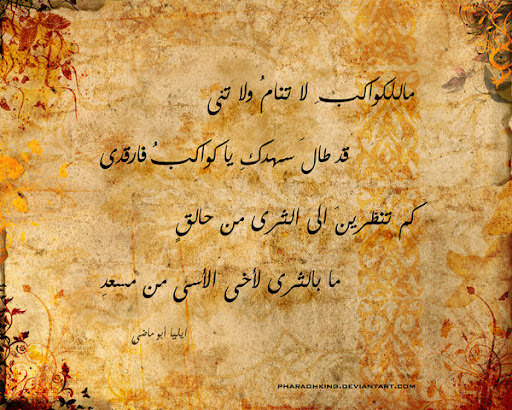 ماللكواكبِ لا تنامُ ولا تنى
قد طالَ سهدكِ يا كواكبُ فارقدى
كم تنظرينَ الى الثرى من حالقٍ
ما بالثرى لأخى الأسى من مسعدِ
ايليا أبو ماضى
PHARAOHKING.DEVIANTART.COM